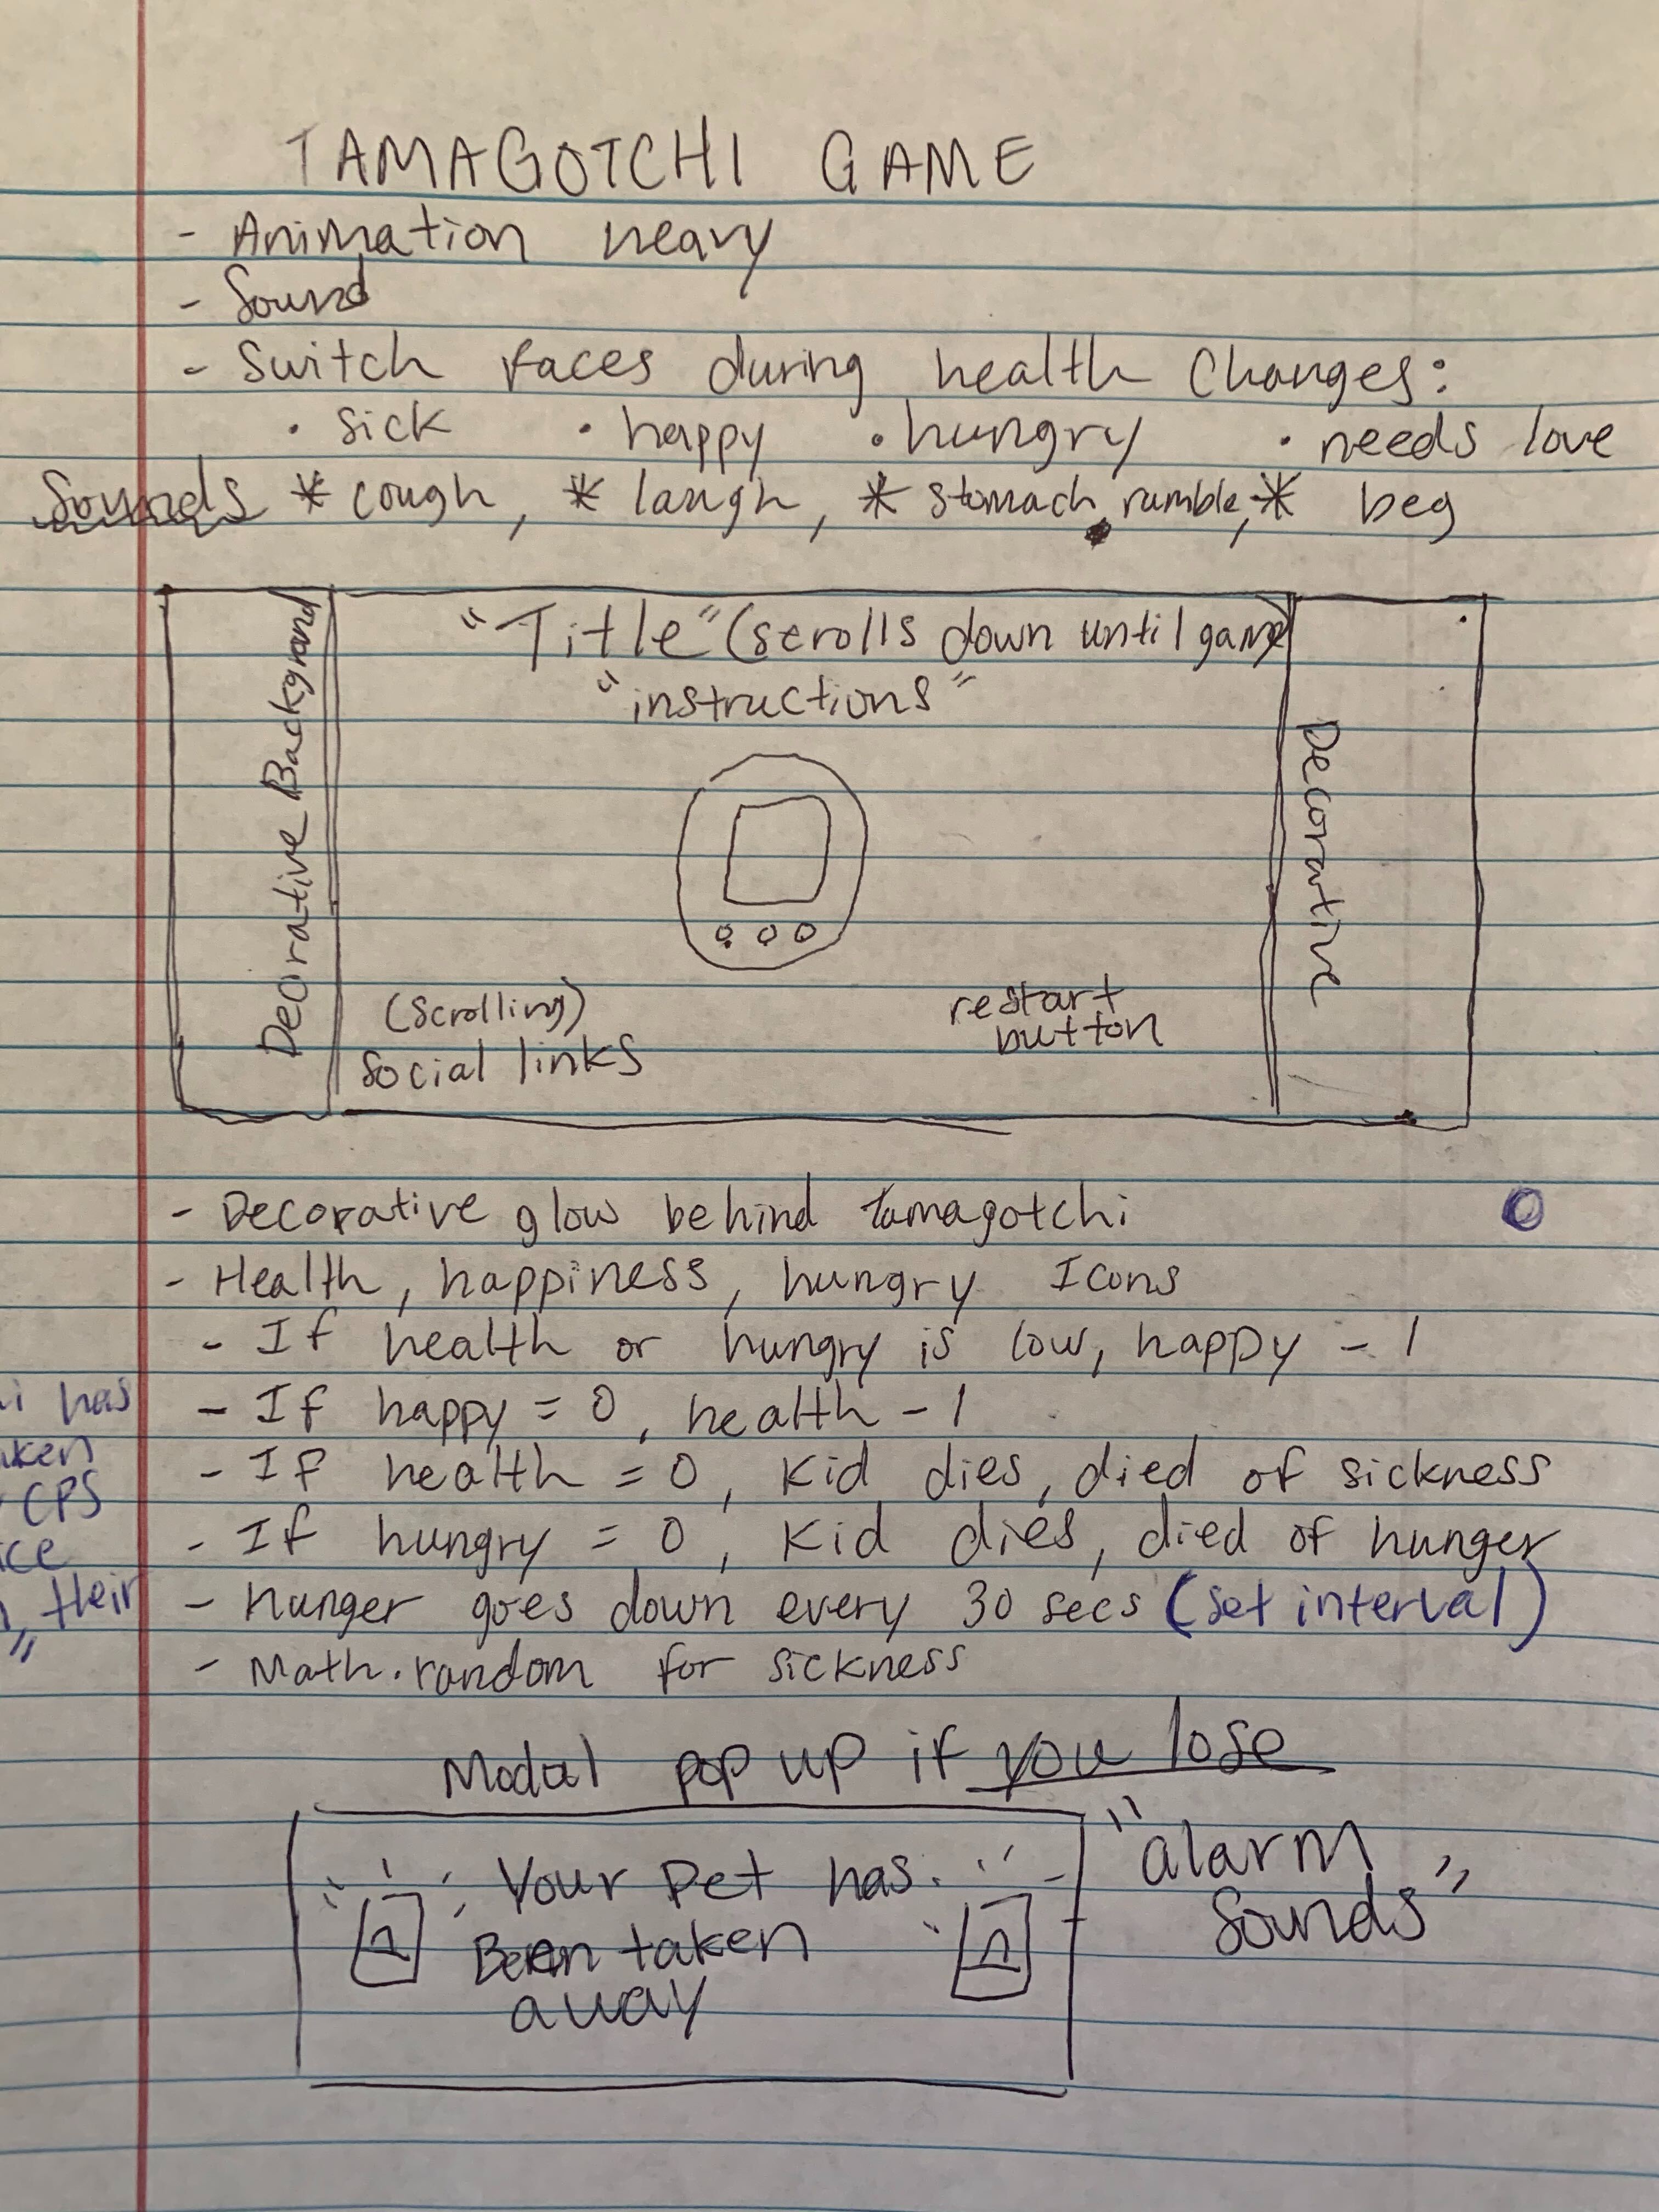 TAMAGOTCHI GAME
- Animation heavy
- Sound
- Switch faces during health changes:
• sick • happy • hungry • needs love
Sounds * cough, * laugh, * stomach rumble, * beg
"Title" (scrolls down until game
"instructions"
Decorative Background
Decorative
(scrolling)
social links
restart
button
- Decorative glow behind tamagotchi
- Health, happiness, hungry Icons
- If health or hungry is low, happy - 1
- If happy = 0, health - 1
- If health = 0, kid dies, died of sickness
- If hungry = 0, kid dies, died of hunger
- Hunger goes down every 30 secs (set interval)
- Math.random for sickness
i has
aken
CPS
ice
, their
"
Modal pop up if you lose
Your Pet has
Been taken
away
"alarm
sounds"